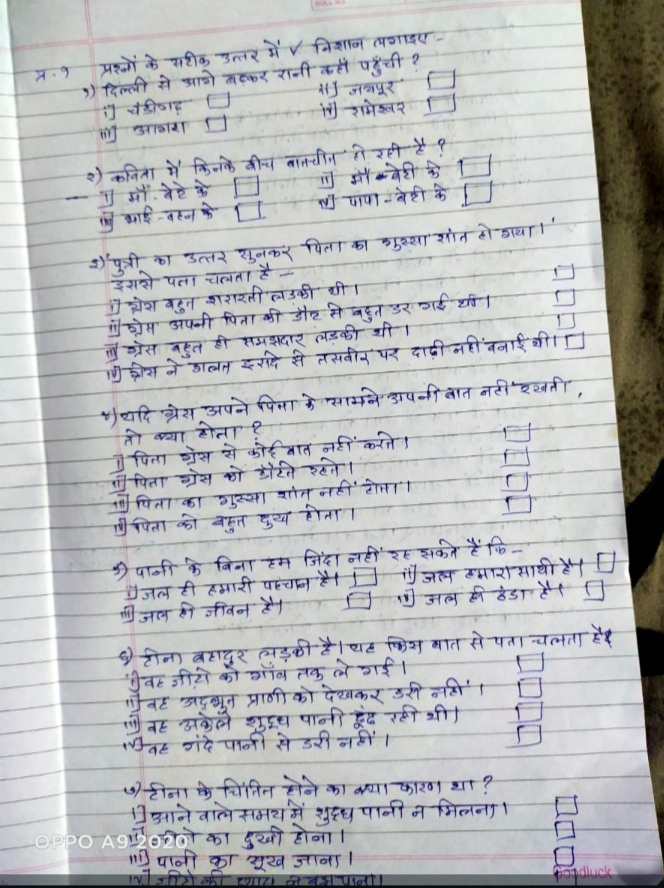 ROLL NO.
प्र.१ प्रश्नों के सटीक उत्तर में ✓ निशान लगाइए-
१) दिल्ली से आगे बढ़कर रानी कहाँ पहुँची ?
i] चंडीगढ़ □ ii] जयपुर □
iii] आगरा □ iv] रामेश्वर □
२) कविता में किनके बीच बातचीत हो रही है ?
i] माँ-बेटे के □ ii] माँ-बेटी के □
iii] भाई-बहन के □ iv] पापा-बेटी के □
३) 'पुत्री का उत्तर सुनकर पिता का गुस्सा शांत हो गया।'
इससे पता चलता है -
i] ग्रेस बहुत शरारती लड़की थी। □
ii] ग्रेस अपनी पिता की डाँट से बहुत डर गई थी। □
iii] ग्रेस बहुत ही समझदार लड़की थी। □
iv] ग्रेस ने गलत इरादे से तसवीर पर दाढ़ी नहीं बनाई थी। □
४) यदि ग्रेस अपने पिता के सामने अपनी बात नहीं रखती,
तो क्या होता ?
i] पिता ग्रेस से कोई बात नहीं करते। □
ii] पिता ग्रेस को डाँटते रहते। □
iii] पिता का गुस्सा शांत नहीं होता। □
iv] पिता को बहुत दुख होता। □
५) पानी के बिना हम जिंदा नहीं रह सकते हैं कि-
i] जल ही हमारी पहचान है। □ ii] जल हमारा साथी है। □
iii] जल ही जीवन है। □ iv] जल ही ठंडा है। □
६) टीना बहादुर लड़की है। यह किस बात से पता चलता है?
i] वह जीटो को गाँव तक ले गई। □
ii] वह अद्भुत प्राणी को देखकर डरी नहीं । □
iii] वह अकेले शुद्ध पानी ढूंढ रही थी। □
iv] वह गंदे पानी से डरी नहीं । □
७) टीना के चिंतित होने का क्या कारण था ?
i] आने वाले समय में शुद्ध पानी न मिलना। □
ii] जीटो का दुखी होना । □
iii] पानी का सूख जाना । □
iv] जीटो की
OPPO A9 2020
Goodluck